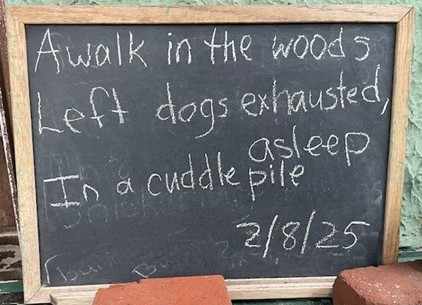 A walk in the woods
Left dogs exhausted,
asleep
In a cuddle pile
2/8/25